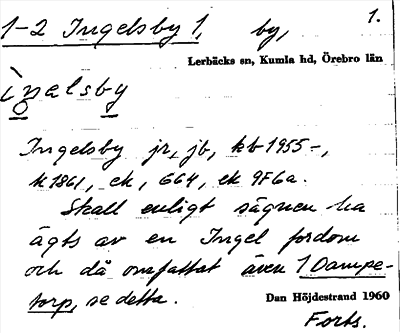 1-2 Ingelsby 1, by, 1.
Lerbäcks sn, Kumla hd, Örebro län
ìŋelsby
Ingelsby jr, jb, kb 1955-,
k 1861, ek, G64, ek 9F6a.
Skall enligt sägnen ha
ägts av en Ingel fordom
och då omfattat även 1 Dampe-
torp, se detta.
Dan Höjdestrand 1960
Forts.